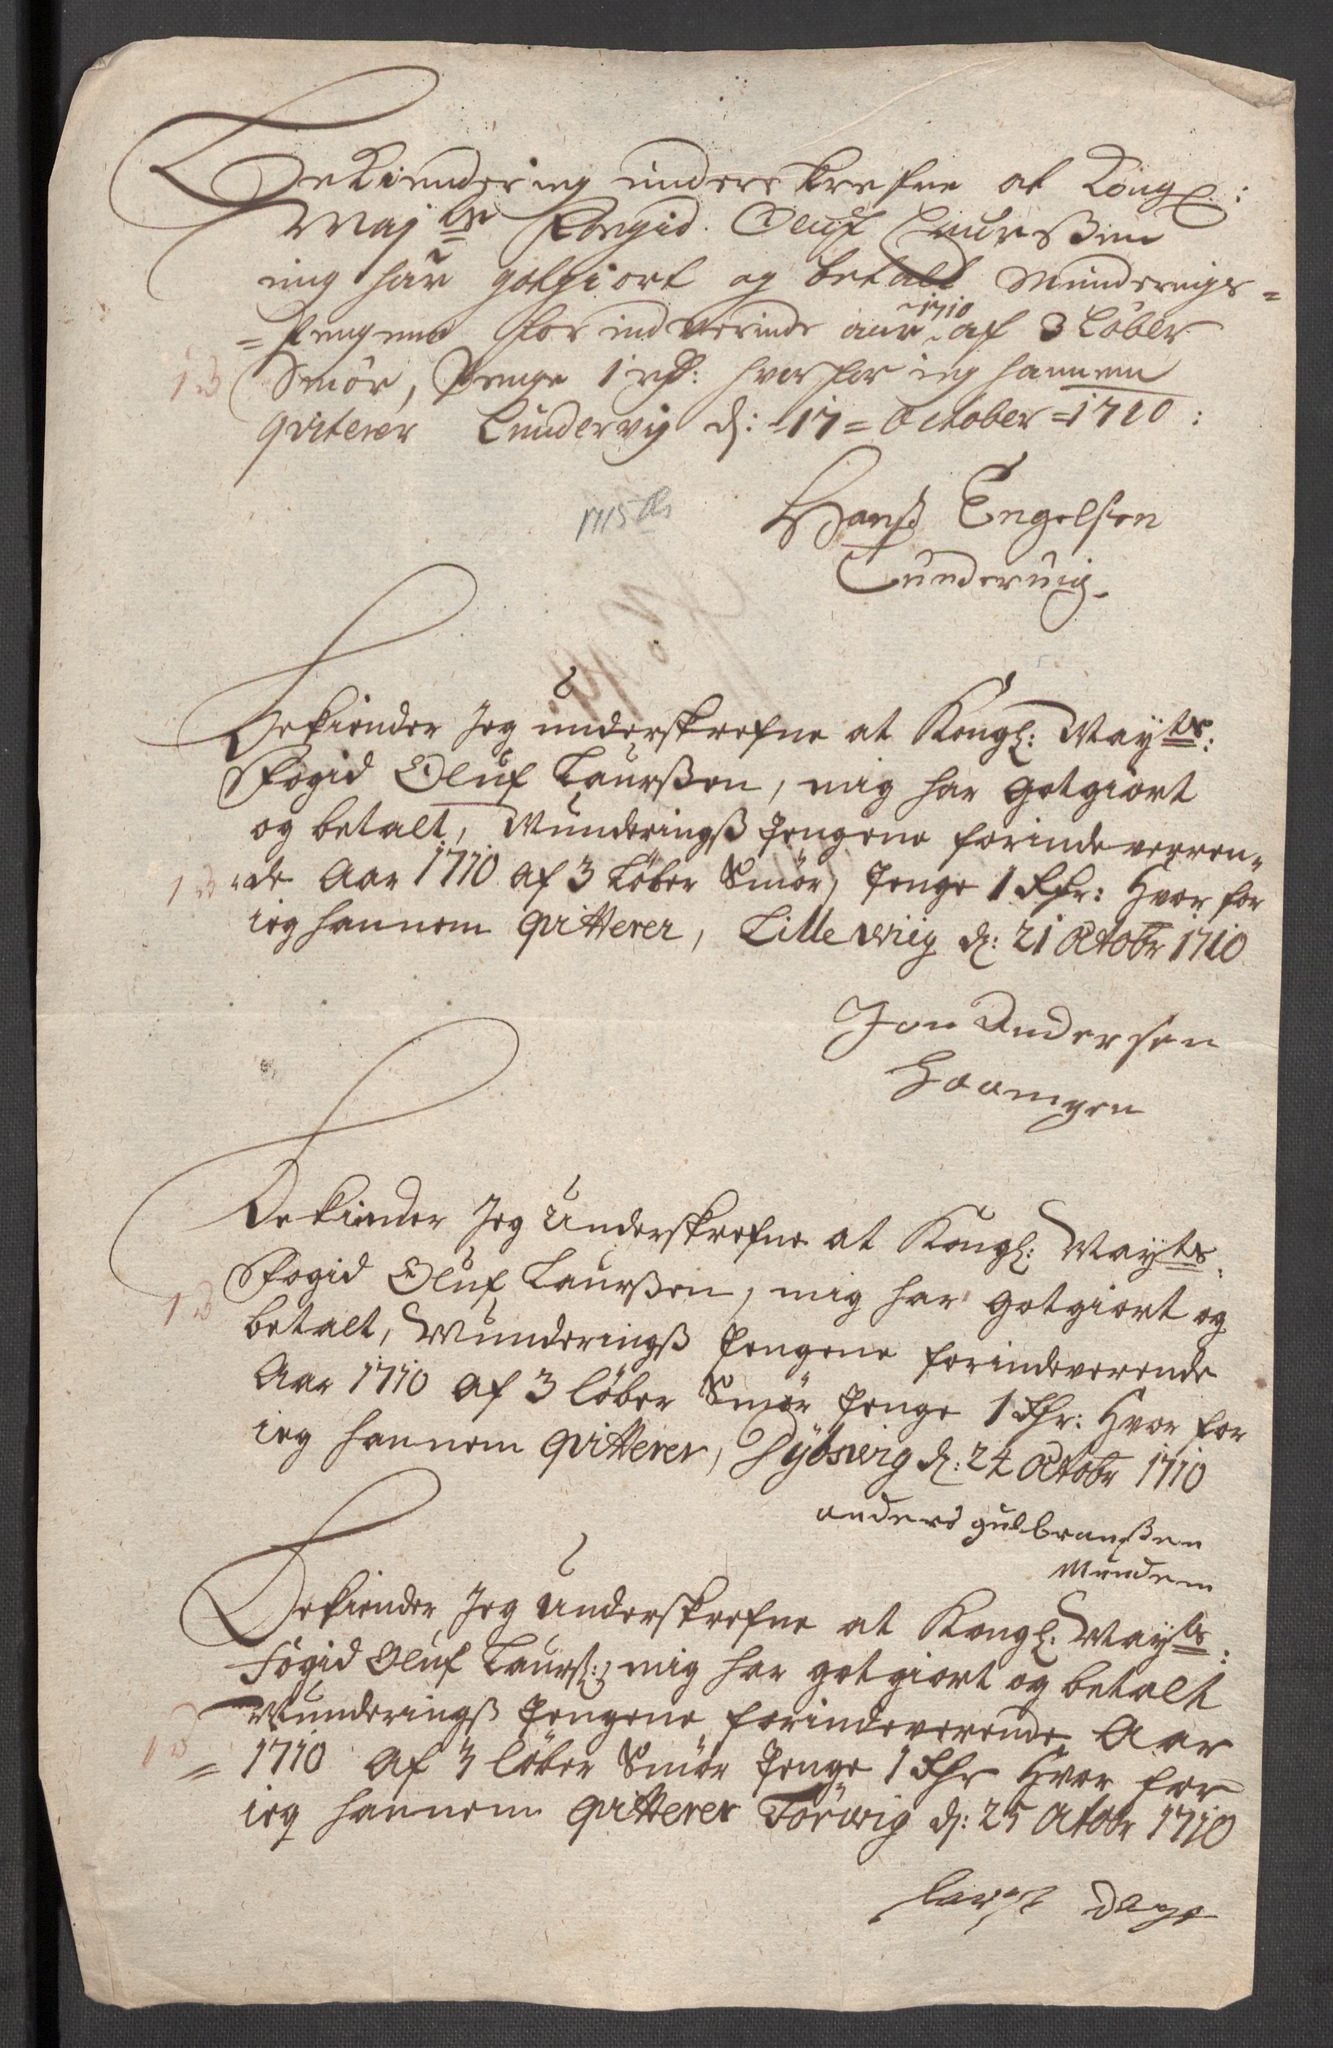 Bekiender ieg underskrefne at Kongl:
Maj:ts Fougid Oluf Laurßen
mig har gotgiort og betalt Munderings=
=Pengene for indverende aar 1710 af 3 Løber
Smør, Penge 1 rdr: hvorfor ieg hannem
qviterer Lundervig d: 17 October 1710:
Hanß Engelsen
Lundervig
Bekiender Jeg underskrefne at Kongl: Mayts:
Fogid Oluf Laurßen, mig har gotgiort
og betalt, Munderingß Pengene forindeverren=
=de Aar 1710 af 3 Løber Smør, Penge 1 Rdr: Hvor for
ieg hannem qvitterer, Lillewiig d: 21 Octobr 1710
Jon Andersen
Bekiender Jeg Underskrefne at Kongl: Mayts:
Fogid Oluf Laurßen, mig har gotgiort og
betalt, Munderingß Pengene forindeverende
Aar 1710 af 3 løber Smør Penge 1 Rdr: Hvor for
ieg hannem qvitterer, Dybsvig d: 24 Octobr 1710
anders gulbranßen
Mundem
Bekiender Jeg Underskrefne at Kongl: Mayts:
Fogid Oluf Laurß:, mig har gotgiort og betalt
Munderingß Pengene forindeverende Aar
1710 af 3 løber Smør Penge 1 Rdr Hvor for
ieg hannem qvitterer Tørwig d: 25 Octobr 1710